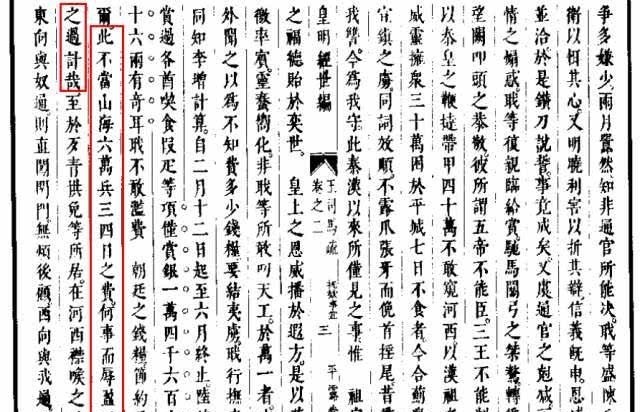 爭多嫌少。兩月瞢然知非通官所能決。職等盛陳
衛以柤其心。又明曉利害以折其辯。信義旣申。恩
並洽。於是鑽刀說誓。事竟成矣。又虞通官之剋減
情之煽惑。職等復親臨給賞。馳馬關弓之桀驁。轉
望闕叩頭之恭敬。彼所謂五帝不能臣。三王不能制
以秦皇之鞭撻。帶甲四十萬不敢窺河西。以漢祖
威靈。擁衆三十萬困於平城七日不食者。今合薊
宣鎮之虜。同詞效順。不露爪張牙而俛首搖尾。昔
我讐。今爲我守。此秦漢以來所僅見之事。惟 祖
皇明經世編 卷之二 王司馬疏 三 平露
之福德貽於奕世。 皇上之恩威播於遐方。是以
徼率賓。靈蠢嚮化。非職等所敢叨天工於萬一者
外聞之以爲不知費多少錢糧。要結夷虜。職行撫
同知李增計算。自二月十二日起至六月終止。陸
賞過各酋喫食段疋等項。僅賞銀一萬四千六百
十六兩有奇耳。職不敢濫費 朝廷之錢糧。節約
爾。此不當山海六萬兵三四日之費。何事而辱盈
之過計哉。至於歹青拱兔等所居。在河西襟喉之
東向與奴通。則直闖關門。無煩後顧。西向與我通。